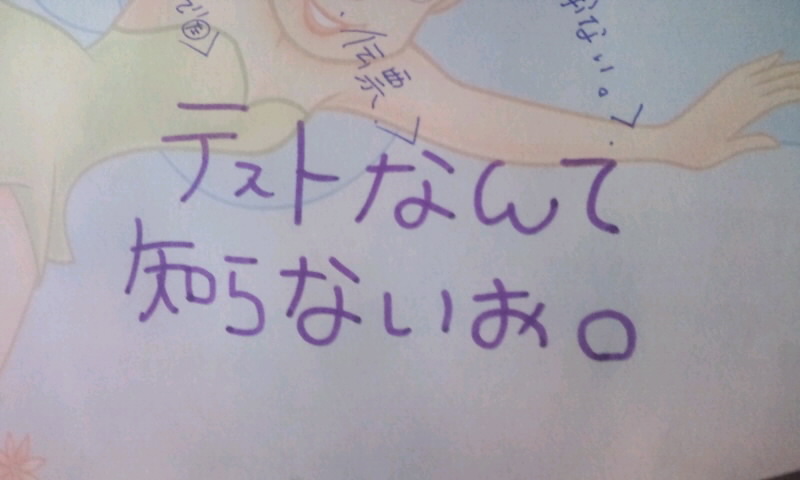 伝票
なない。
テストなんて
知らないお。